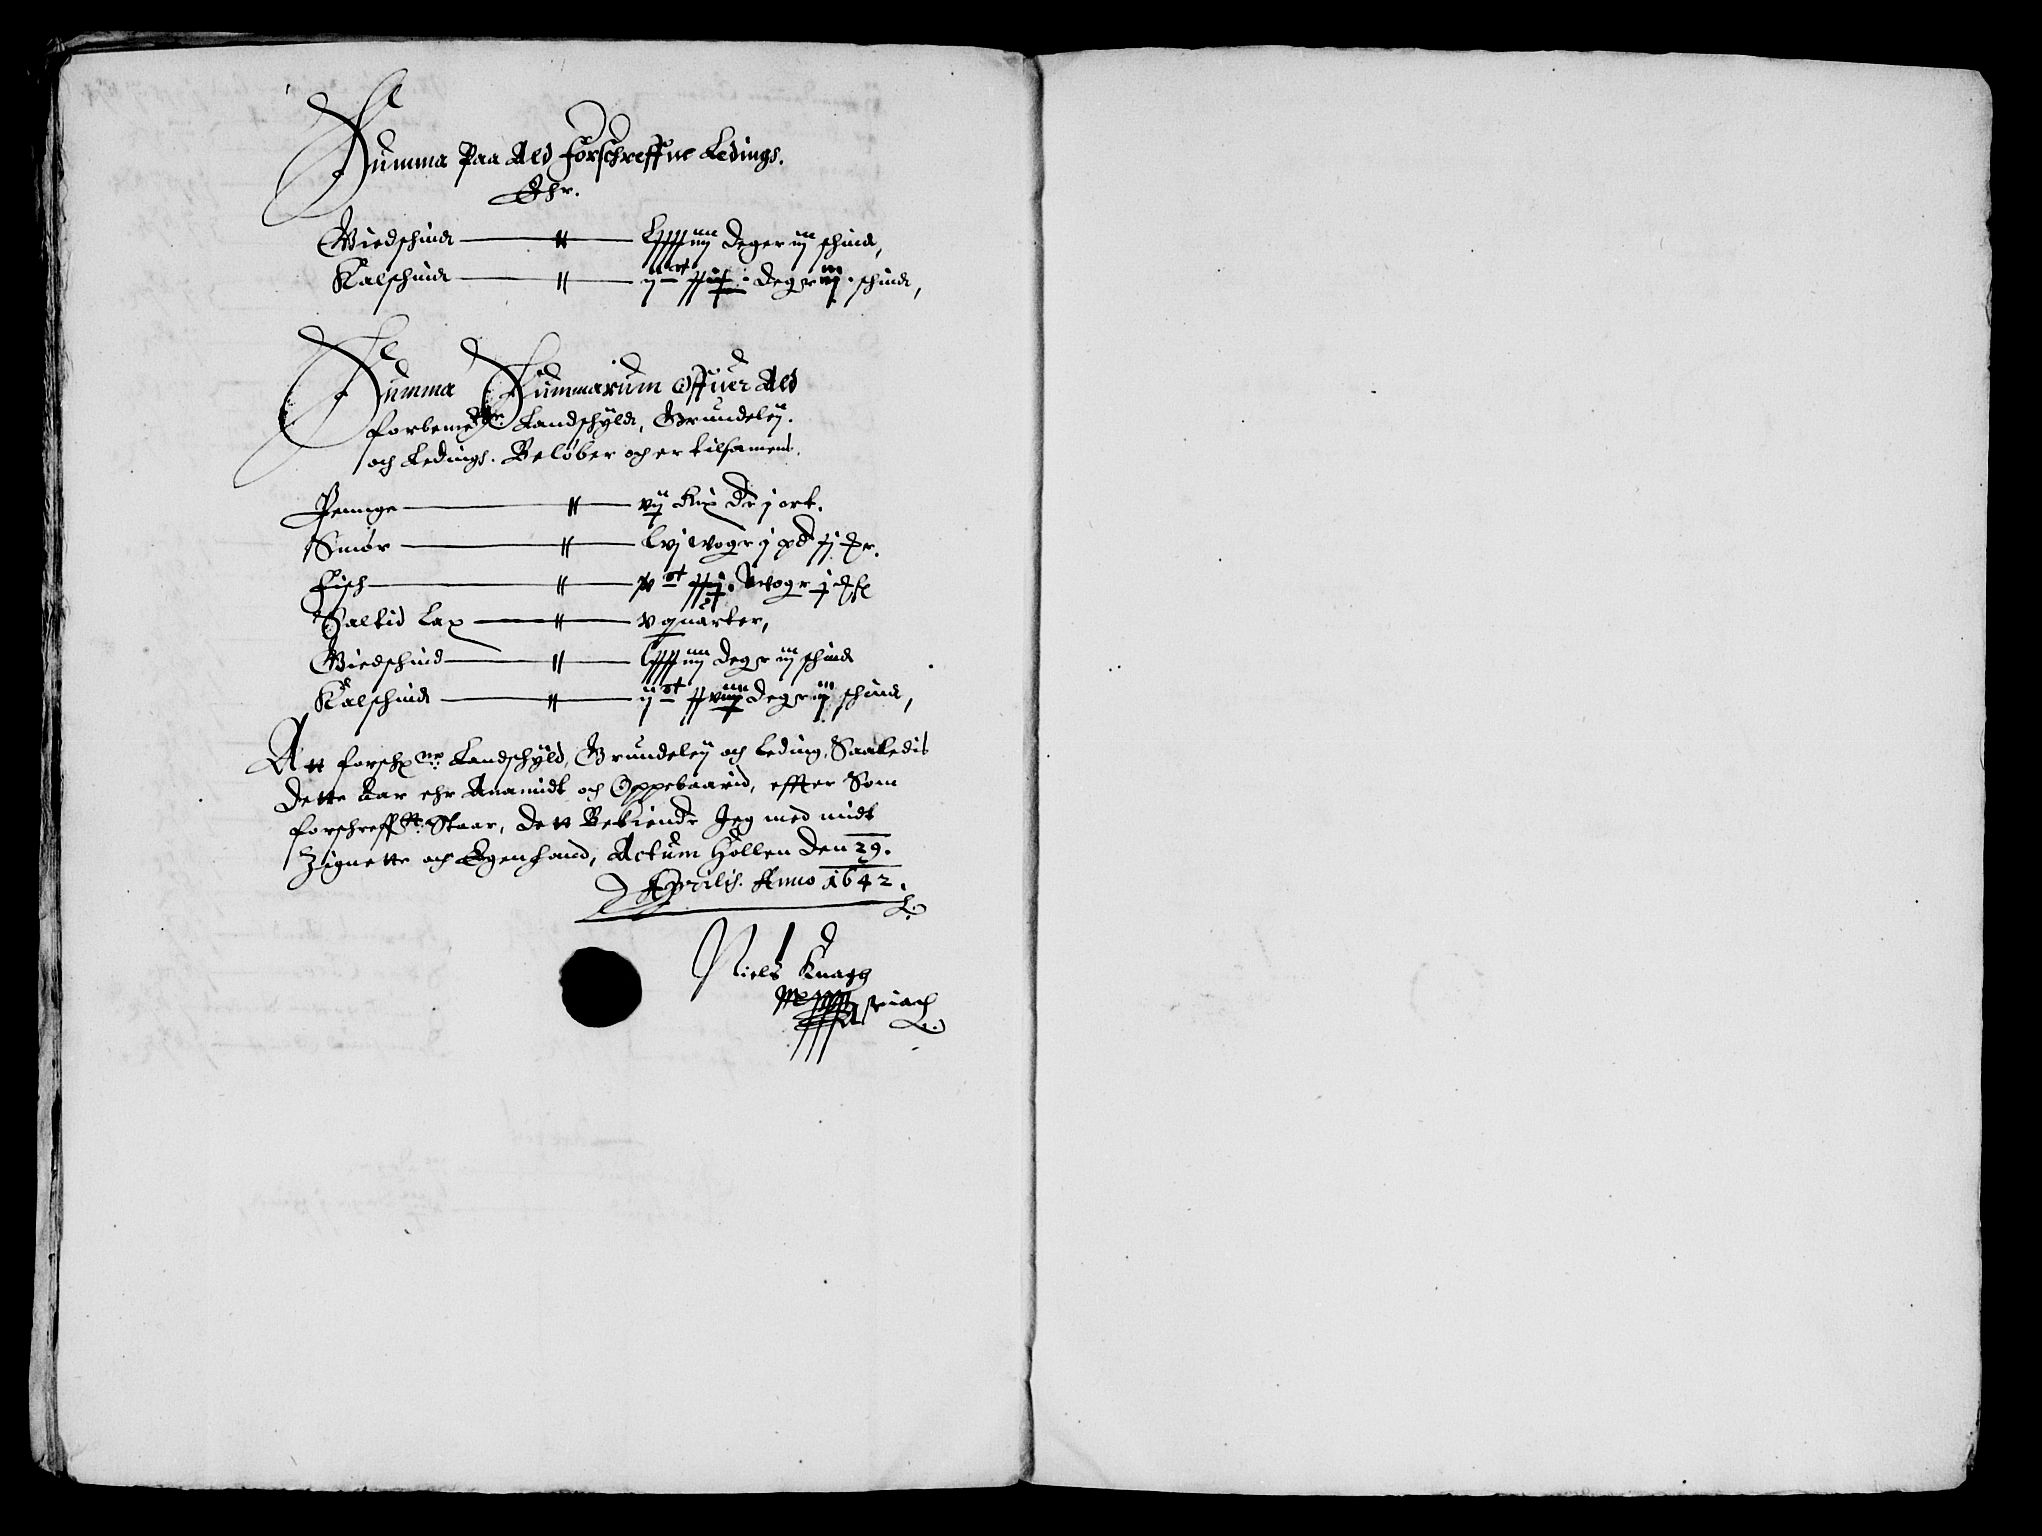 Summa Paa Ald forschreffne Ledings.
Ehr.
Giedschind — Deger iij schind,
Kalschind — Deger schind,
Summa Summarum Offuer Ald
forbemelte Landschyld, Grundeleÿ.
och Ledings. Beløber och er tilsamens.
Penninge — vij Rix Dr j ort.
Smør — lvj woger j pd
Fisch — woger j
Saltid Lax — v quarter,
Giedschind — Deger iij schind
Kalschind — Deger schind,
Att forschne Landschÿld, Grundeleÿ och Leding, Saaledis
Dette Aar ehr Anamidt och Oppebaarid, effter Som
forschreffuit Staar, Dett Bekiender Jeg med midt
Zignette och Egenhand, Actum Hollen Den 29.
Aprilis. Anno 1642.
Niels Knagh